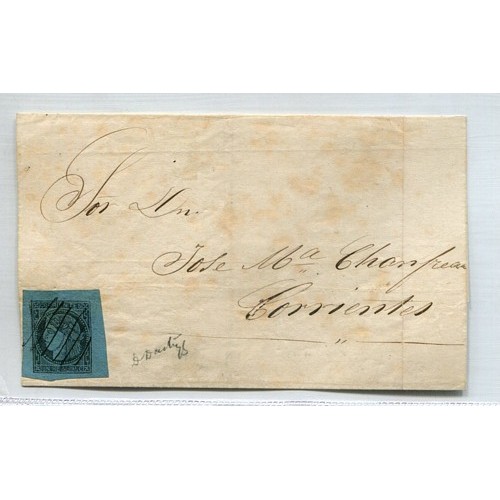 Sor Dn.
Jose Ma Chanfreau
Corrientes